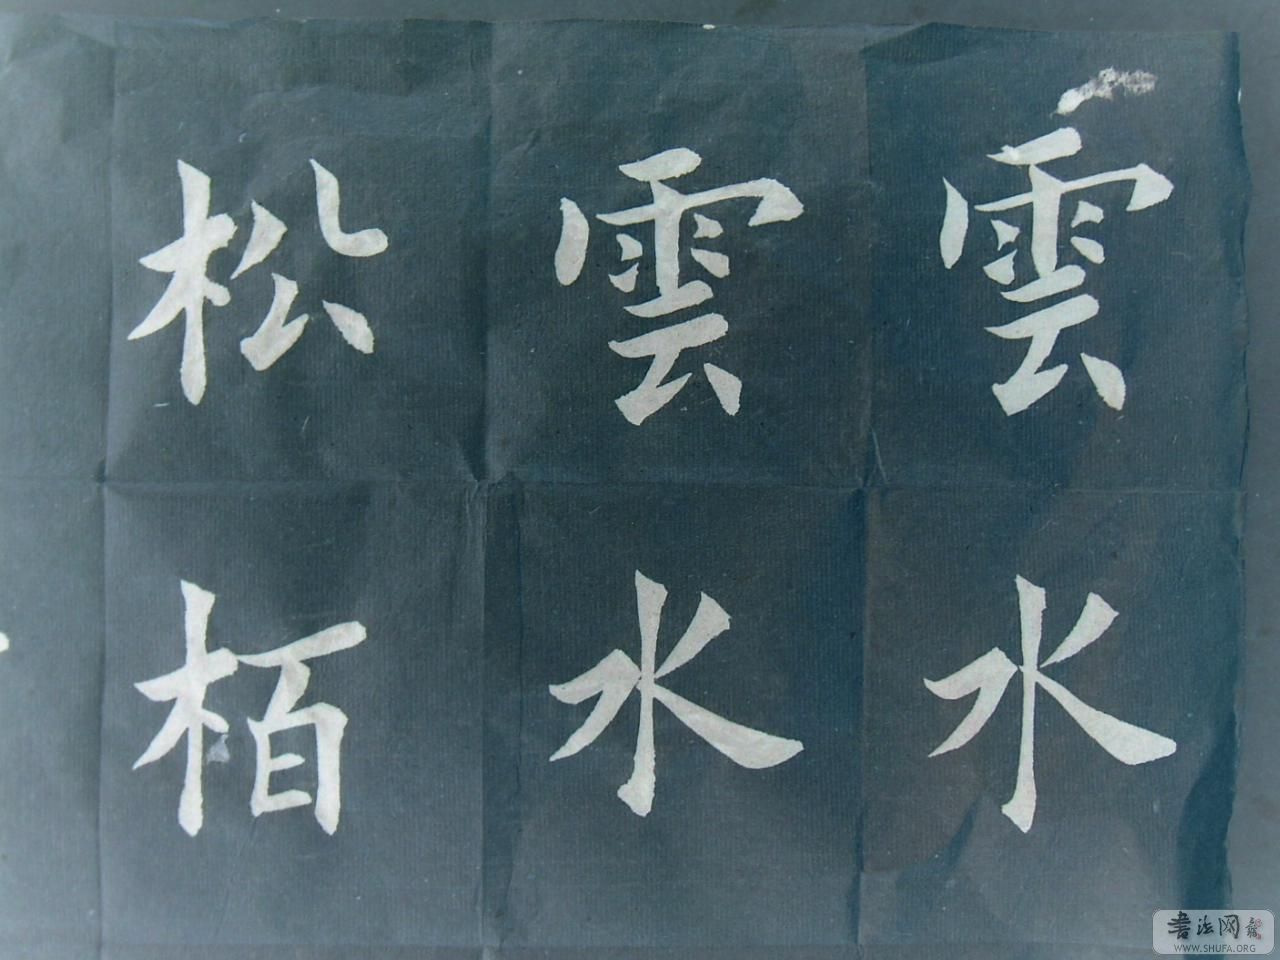 雲水
雲水
松栢
書法网
WWW.SHUFA.ORG